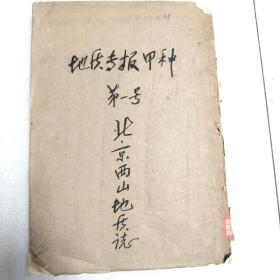 地质专报甲种
第一号
北京西山地质誌